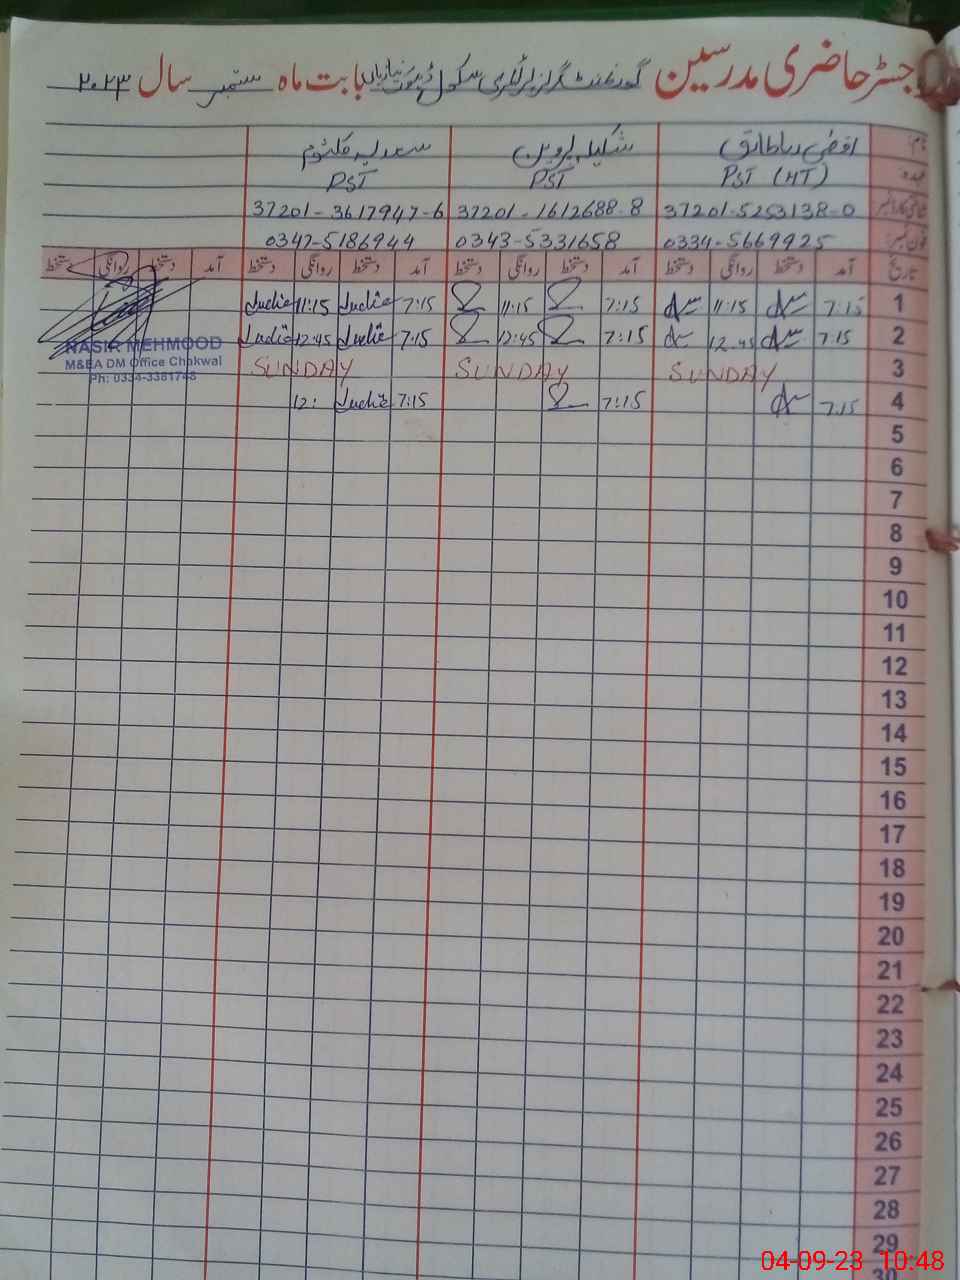 رجسٹر حاضری مدرسین گورنمنٹ گرلز پرائمری سکول بابت ماہ ستمبر سال ۲۰۲۳
نام شکیلہ پروین سعدیہ کلثوم
عہدہ PST (HT) PST PST
شناختی کارڈ نمبر 37201-5253138-0 37201-1612688-8 37201-3617947-6
فون نمبر 0334-5669925 0343-5331658 0347-5186944
تاریخ آمد دستخط روانگی دستخط آمد دستخط روانگی دستخط آمد دستخط روانگی دستخط آمد دستخط روانگی دستخط
1 7:15 11:15 7:15 11:15 7:15 11:15
2 7:15 12:45 7:15 12:45 7:15 12:45
NASIR MEHMOOD
M&EA DM Office Chakwal
Ph: 0334-3381748
3 SUNDAY SUNDAY SUNDAY
4 7:15 7:15 7:15 12:
5
6
7
8
9
10
11
12
13
14
15
16
17
18
19
20
21
22
23
24
25
26
27
28
29
30
04-09-23 10:48